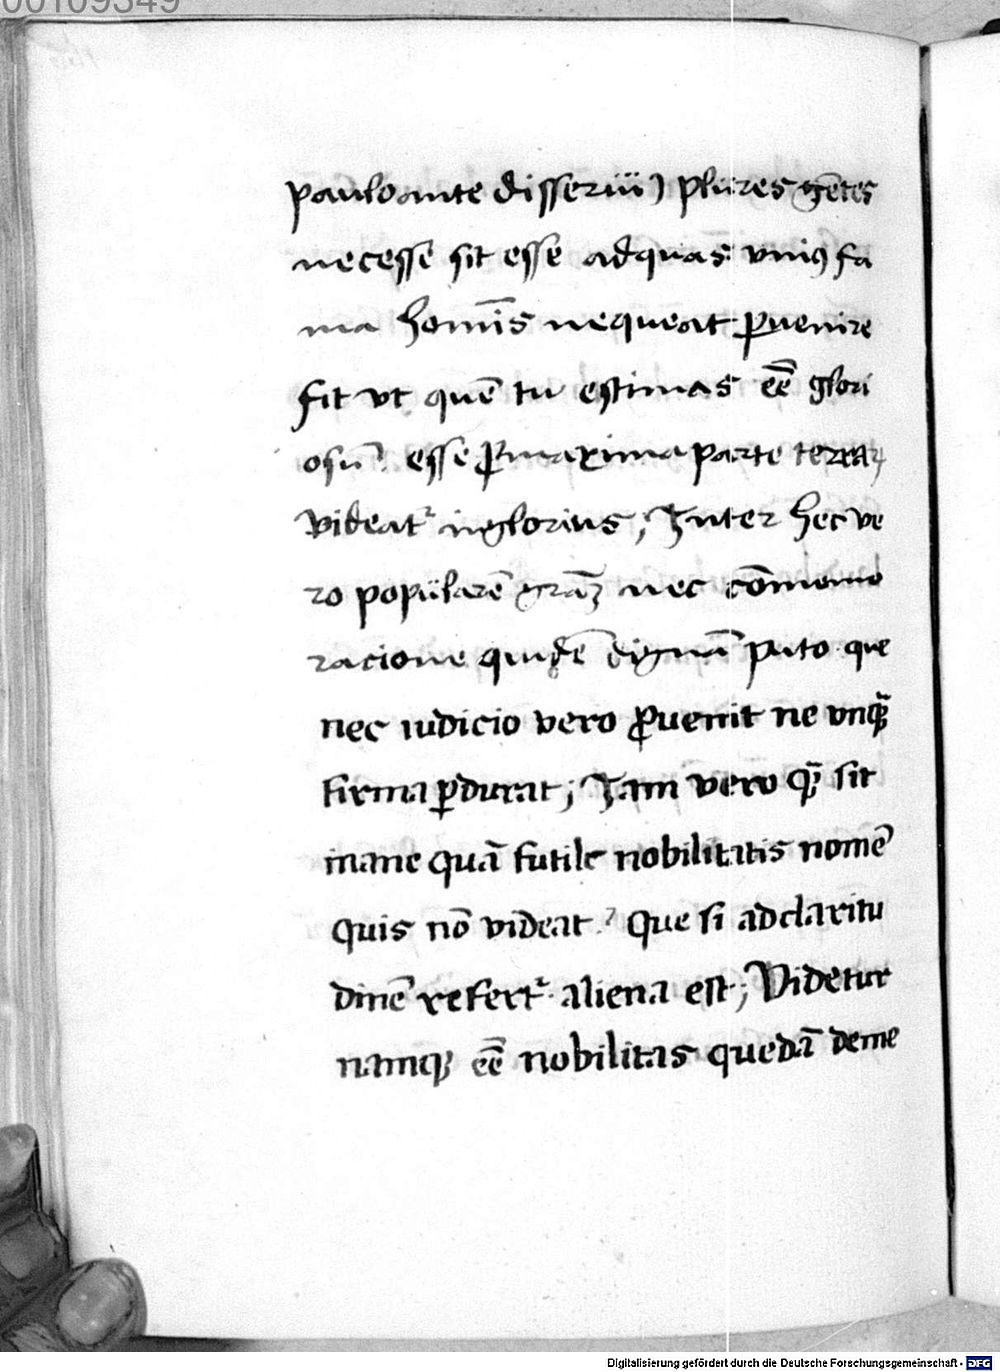 00109349
pauloante disserui) plures gētes
necesse sit esse adquas vniꝰ fa
ma homīs nequeat ꝑuenire
fit vt quē tu estimas eē glori
osū esse ꝓ maxima parte terrarꝝ
videatᷣ inglorius; Inter hec ve
ro popularē graꝫ nec cōmemo
racione quidē dignā puto que
nec iudicio vero ꝓuenit ne vnqꝫ̃
firma ꝑdurat; Iam vero qꝫ̃ sit
inane quā futile nobilitatis nomē
quis nō videat? Que si adclaritu
dinē refertᷣ aliena est; Videtur
namqꝫ eē nobilitas quedā deme
Digitalisierung gefördert durch die Deutsche Forschungsgemeinschaft - DFG